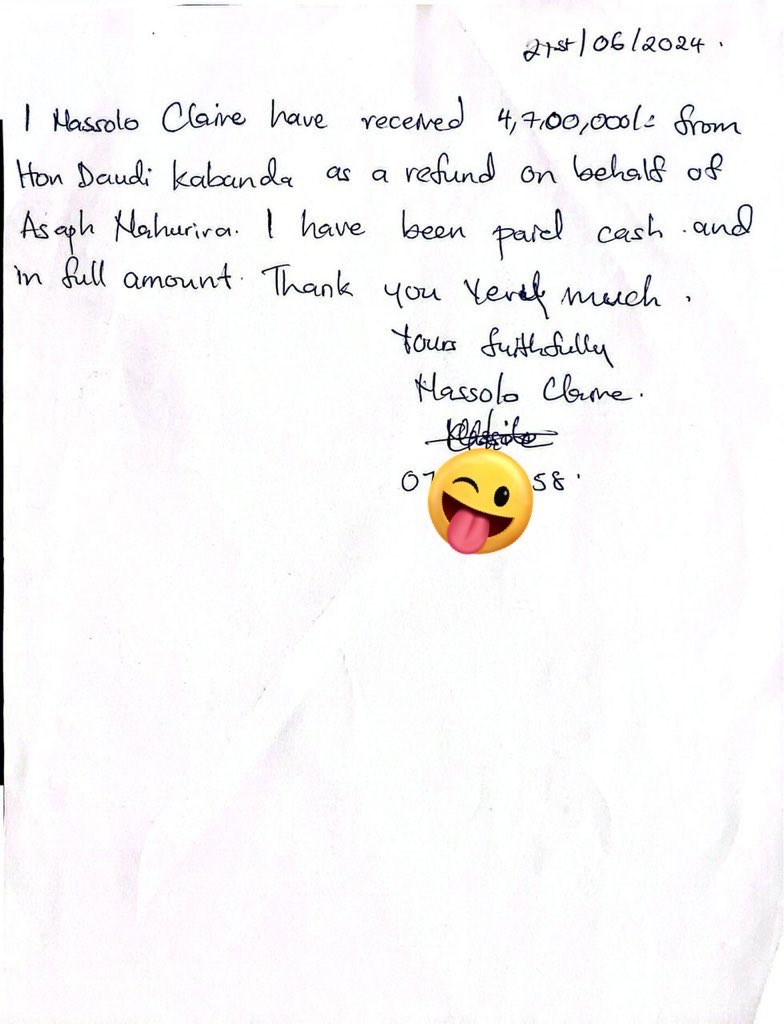 21st/06/2024.
I Massolo Claire have received 4,7,00,000/= from
Hon Daudi Kabanda as a refund on behalf of
Asaph Mahurira. I have been paid cash and
in full amount. Thank you very much.
Yours faithfully
Massolo Claire.
07 58.